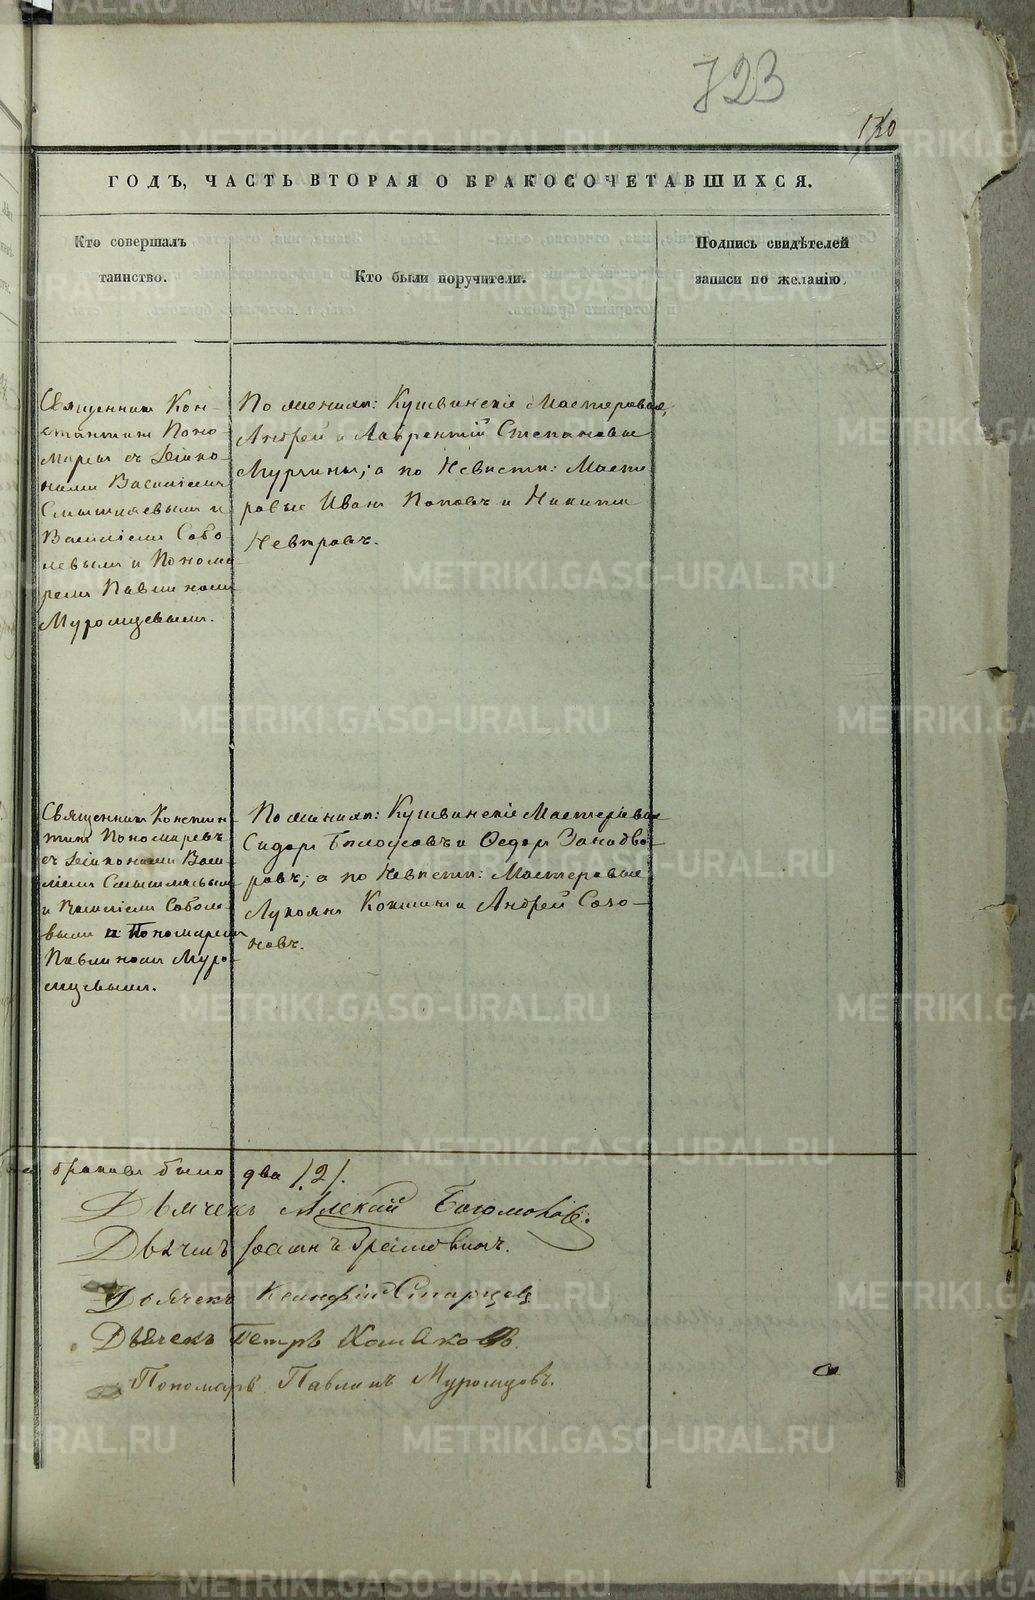 723
120
ГОДЪ, ЧАСТЬ ВТОРАЯ О БРАКОСОЧЕТАВШИХСЯ.
Кто совершалъ
таинство.
Кто были поручители.
Подпись свидѣтелей
записи по желанію.
Священникъ Кон-
стантинъ Поно-
маревъ съ Діако-
нами Василіемъ
Смышляевымъ и
Василіемъ Собо-
левымъ и Понома-
ремъ Павлиномъ
Муромцевымъ.
По женихѣ: Кушвинскіе Мастеровые,
Андрей и Лаврентій Степановы
а по Невѣстѣ: Масте
ровые Иванъ Поповъ и Никита
Священникъ Констан
тинъ Пономаревъ
съ Діаконами Васи
ліемъ Смышляевымъ
и Василіемъ Соболе-
вымъ и Пономаремъ
Павлиномъ Муро-
мцевымъ.
По женихѣ: Кушвинскіе Мастеровые
Сидоръ и Ѳедоръ Занадво-
ровъ; а по Невѣстѣ: Мастеровые
Лукоянъ и Андрей Созо-
новъ.
браковъ было два /2/.
Дьячекъ Алексій Богомоловъ.
Дьячекъ Іоаннъ
Дьячекъ Старцевъ
Дьячекъ Петръ Хомяковъ
Пономарь Павлинъ Муромцовъ.
METRIKI.GASO-URAL.RU